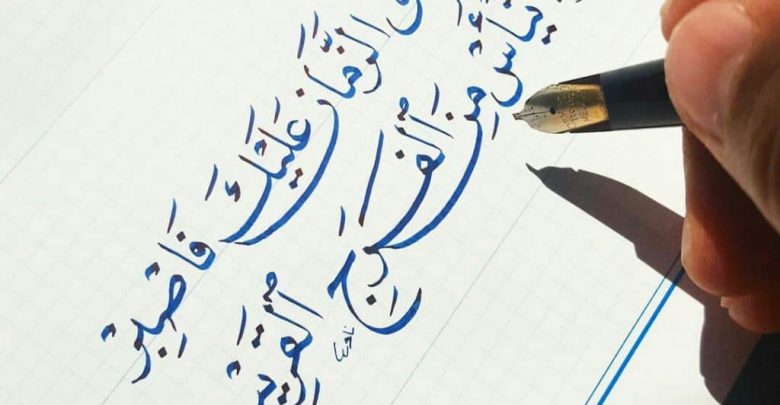 الزَّمَانُ عَلَيْكَ فَاصْبِرْ
تَيْأَسْ مِنَ ٱلْفَرَجِ ٱلْقَرِيبِ